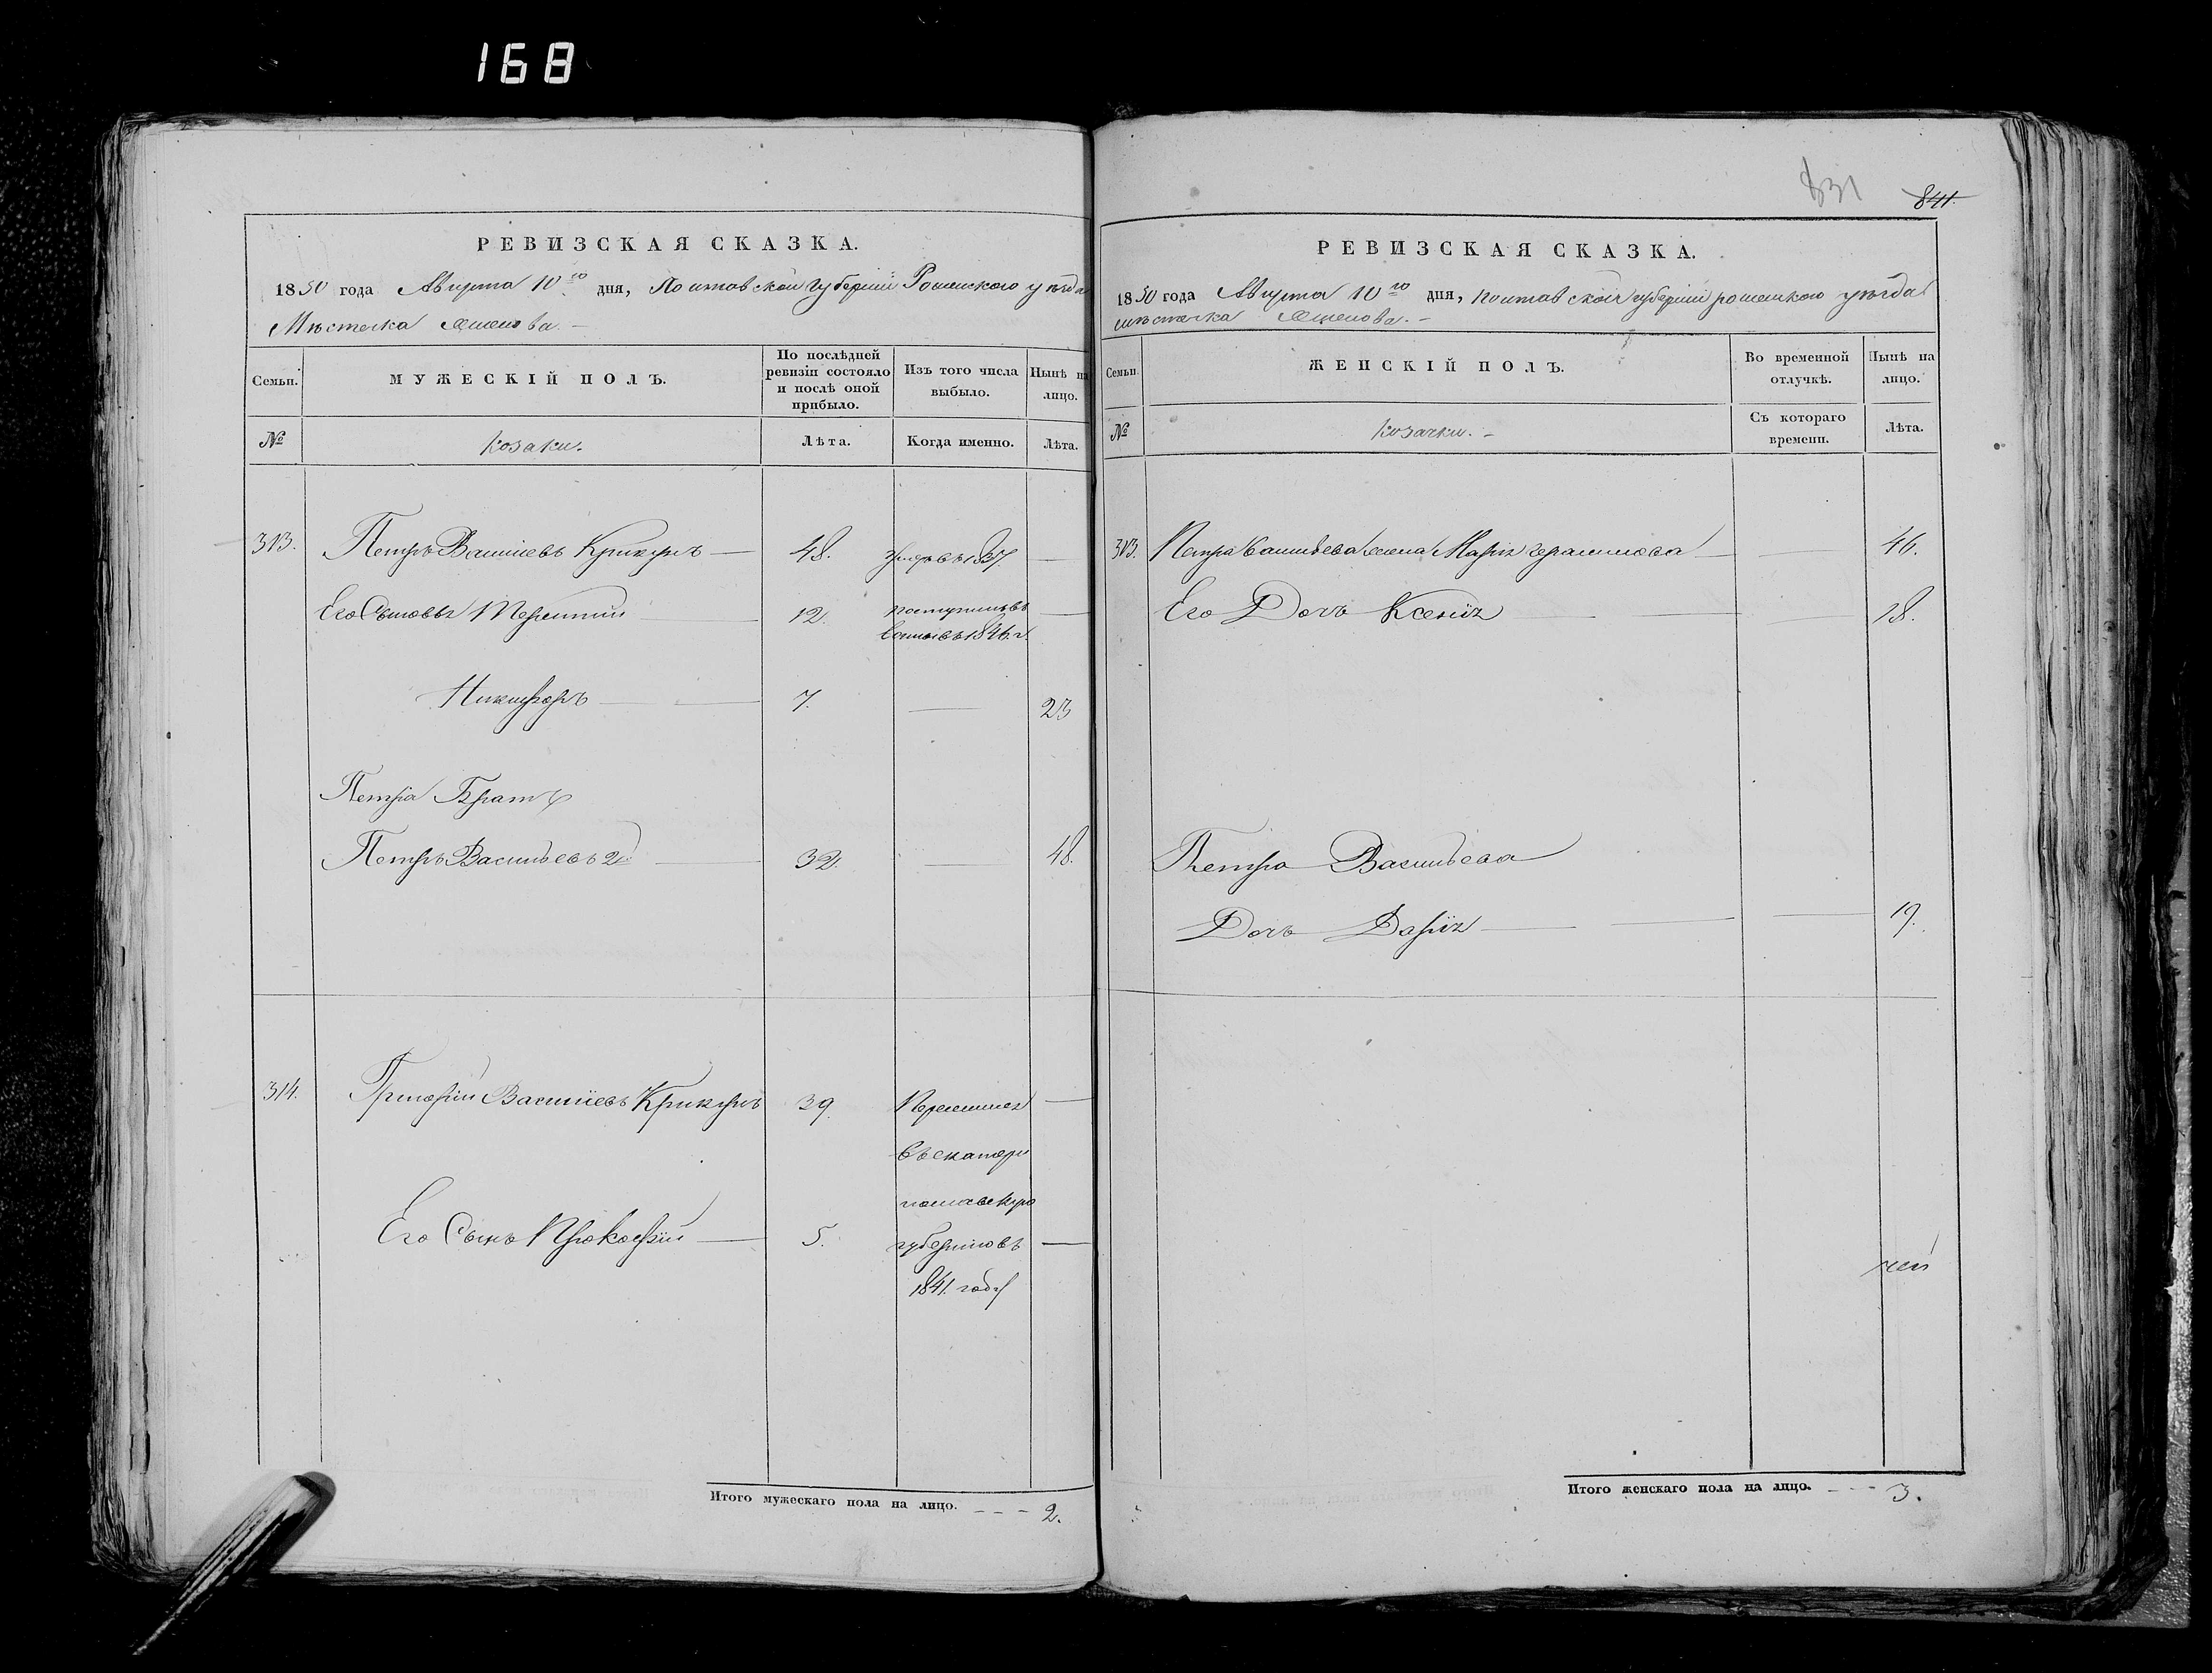 168
831 841.
РЕВИЗСКАЯ СКАЗКА.
1850 года Августа 10го дня, Полтавской губерніи Роменского уѣзда
Мѣстечка
Семьи.
МУЖЕСКІЙ ПОЛЪ.
По послѣдней ревизіи состояло и послѣ оной прибыло.
Изъ того числа выбыло.
Нынѣ на лицо.
№
Козаки.
Лѣта.
Когда именно.
Лѣта.
313. Петръ Василіевъ Крикунъ 48. Умеръ въ 1837.
Его Сыновья Терентий 12. поступилъ въ
въ 1846 г.
Никифоръ 7. 23
Петра Братъ
Петръ Васильевъ 2й 32. 48.
314. Григорій Василіевъ Крикунъ 39. Перечислен
въ екатери
нославскую
Его Сынъ Прокофій 5. губернію въ
1841. году
Итого мужескаго пола на лицо. 2.
РЕВИЗСКАЯ СКАЗКА.
1850 года Августа 10го дня, полтавской губерніи роменского уѣзда
мѣстечка
Семьи.
ЖЕНСКІЙ ПОЛЪ.
Во временной отлучкѣ.
Нынѣ на лицо.
№
Козачки.
Съ котораго времени.
Лѣта.
313. Петра Васильева жена Марія 46.
Его Дочь Ксенія 18.
Петра Васильева
Дочь Дарія 19.
Итого женскаго пола на лицо. 3.